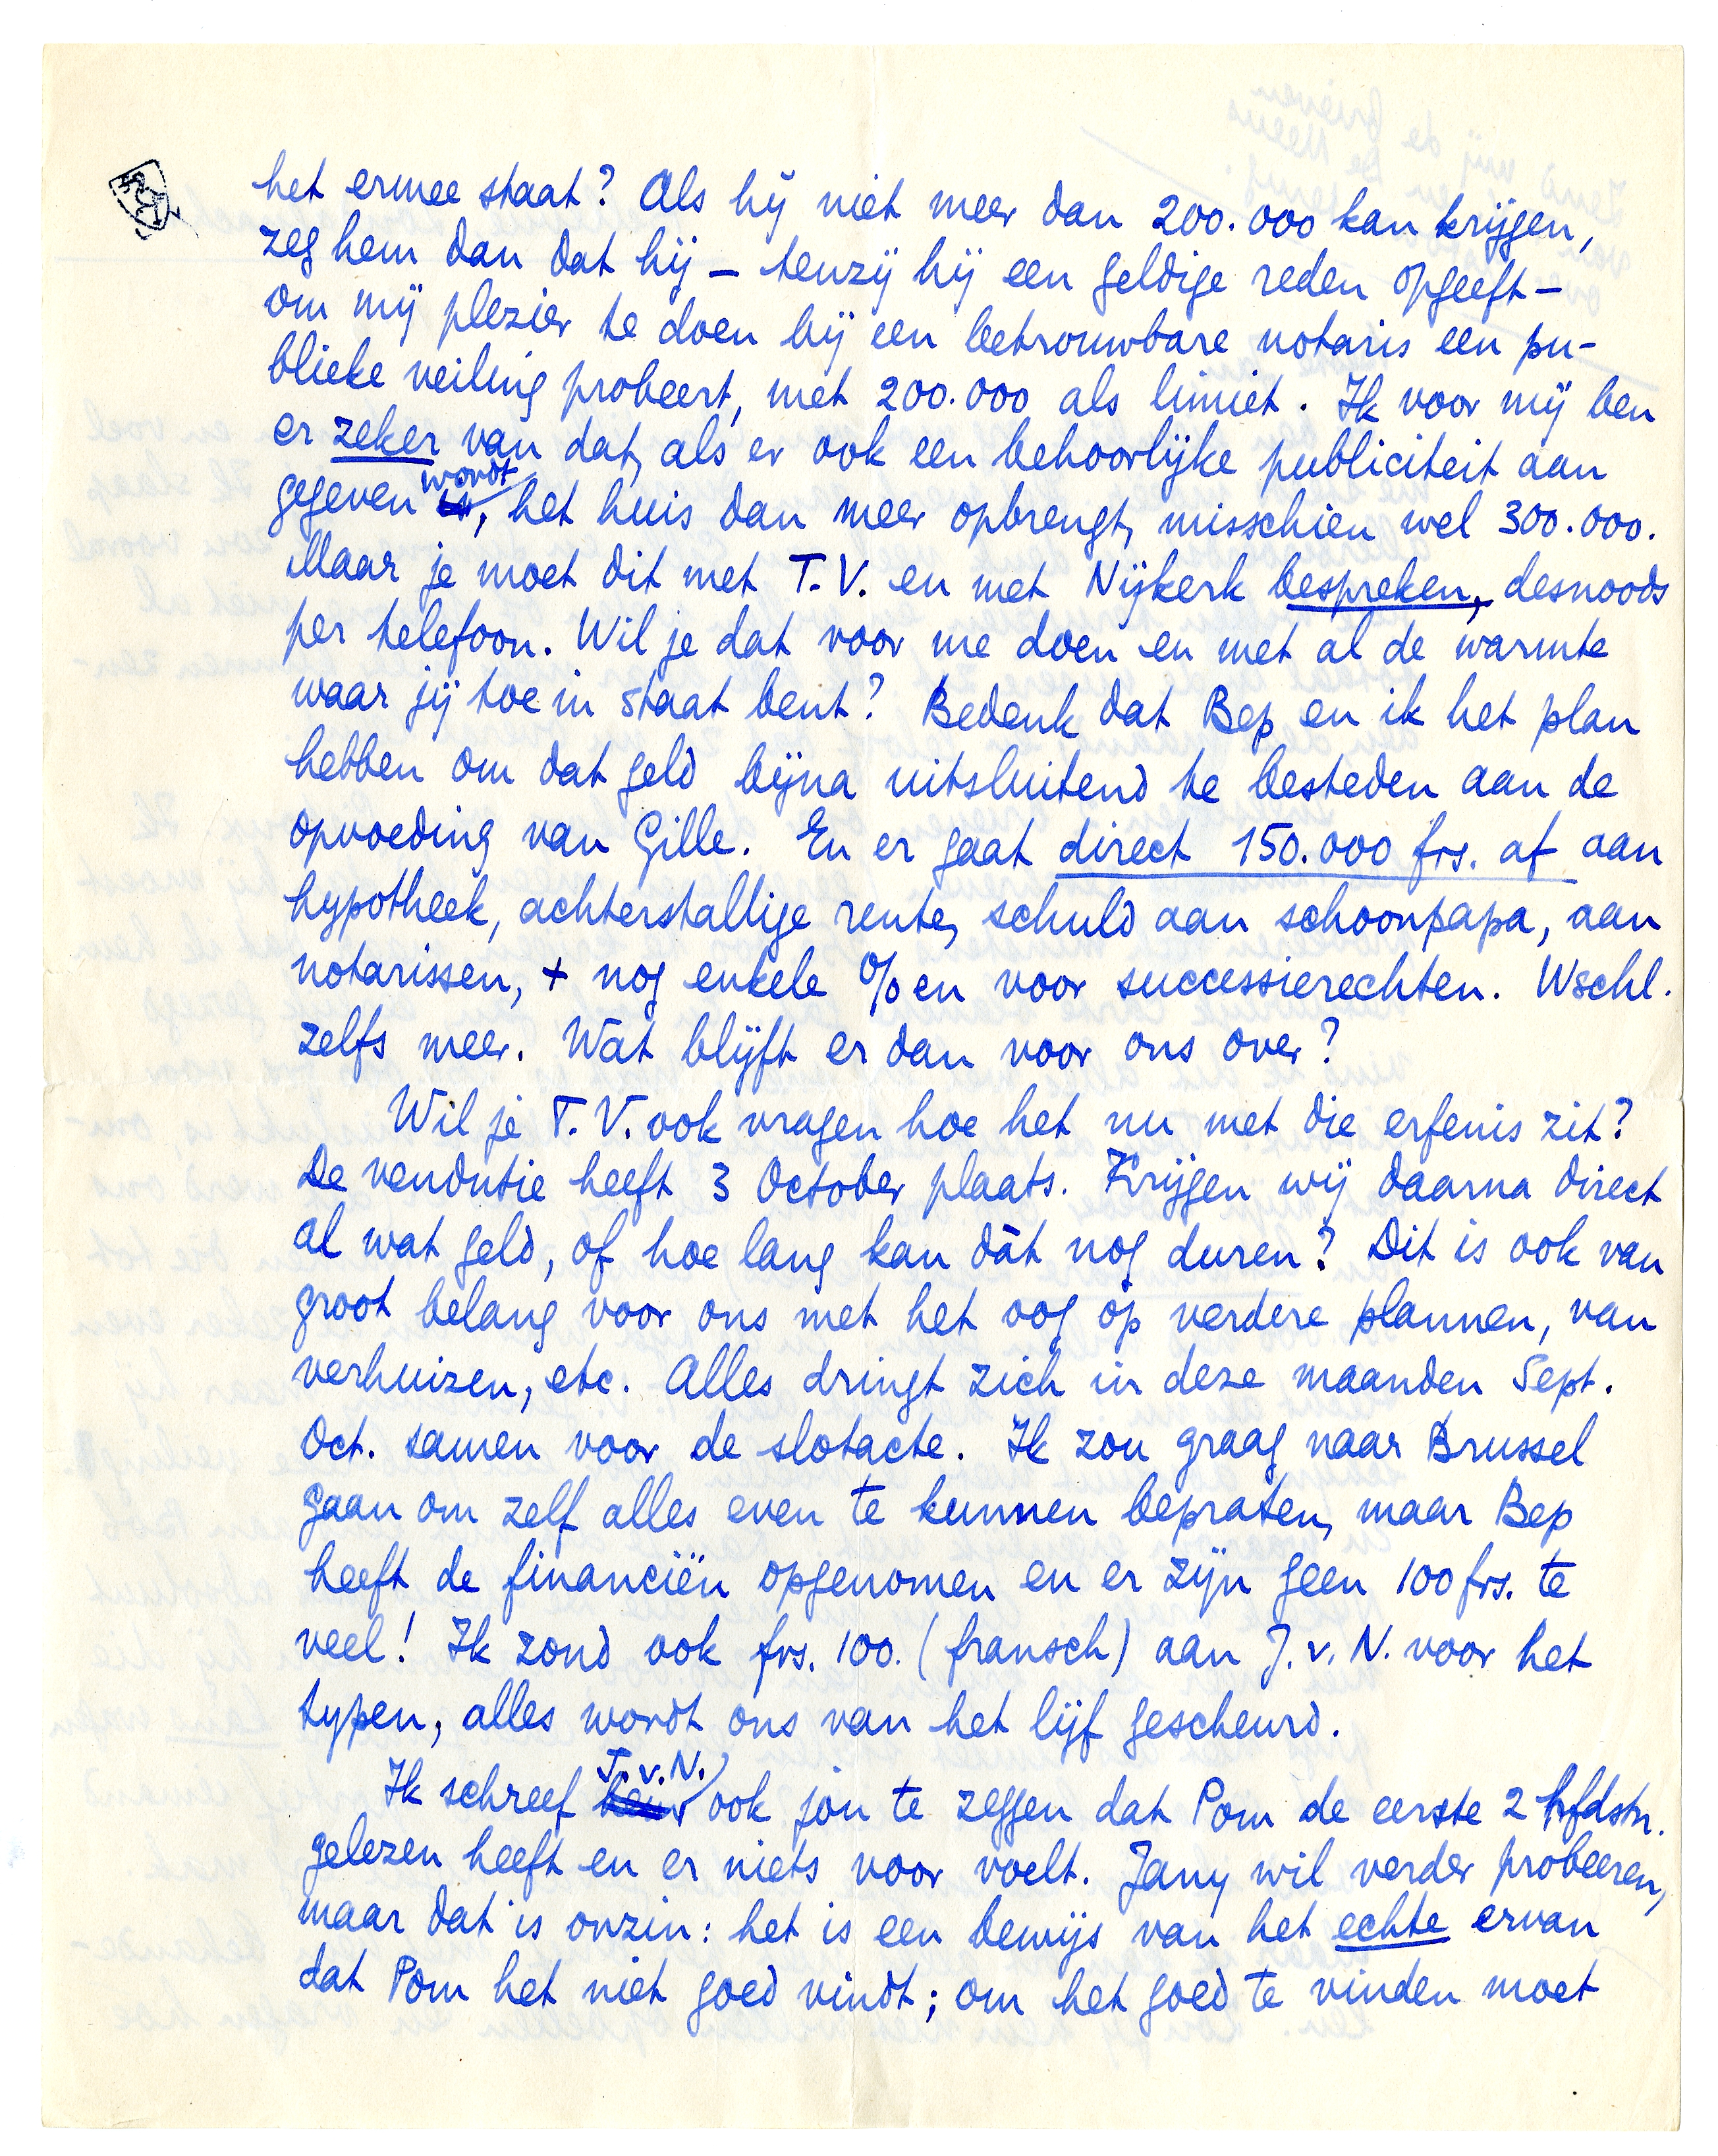 het ermee staat? Als hij niet meer dan 200.000 kan krijgen,
zeg hem dan dat hij – tenzij hij een geldige reden opgeeft –
om mij plezier te doen bij een betrouwbare notaris een pu-
blieke veiling probeert, met 200.000 als limiet. Ik voor mij ben
er zeker van dat, als er ook een behoorlijke publiciteit aan
gegeven wordt, het huis dan meer opbrengt, misschien wel 300.000.
Maar je moet dit met T.V. en met Nijkerk bespreken, desnoods
per telefoon. Wil je dat voor me doen en met al de warmte
waar jij toe in staat bent? Bedenk dat Bep en ik het plan
hebben om dat geld bijna uitsluitend te besteden aan de
opvoeding van Gille. En er gaat direct 150.000 frs. af aan
hypotheek, achterstallige rente, schuld aan schoonpapa, aan
notarissen, + nog enkele %en voor successierechten. Wschl.
zelfs meer. Wat blijft er dan voor ons over?
Wil je T.V. ook vragen hoe het nu met die erfenis zit?
De vendutie heeft 3 October plaats. Krijgen wij daarna direct
al wat geld, of hoe lang kan dàt nog duren? Dit is ook van
groot belang voor ons met het oog op verdere plannen, van
verhuizen, etc. Alles dringt zich in deze maanden Sept.
Oct. samen voor de slotacte. Ik zou graag naar Brussel
gaan om zelf alles even te kunnen bepraten, maar Bep
heeft de financiën opgenomen en er zijn geen 100 frs. te
veel! Ik zond ook frs. 100. (fransch) aan J.v.N. voor het
typen, alles wordt ons van het lijf gescheurd.
Ik schreef J.v.N. ook jou te zeggen dat Pom de eerste 2 hfdstn.
gelezen heeft en er niets voor voelt. Jany wil verder probeeren,
maar dat is onzin: het is een bewijs van het echte ervan
dat Pom het niet goed vindt; om het goed te vinden moet